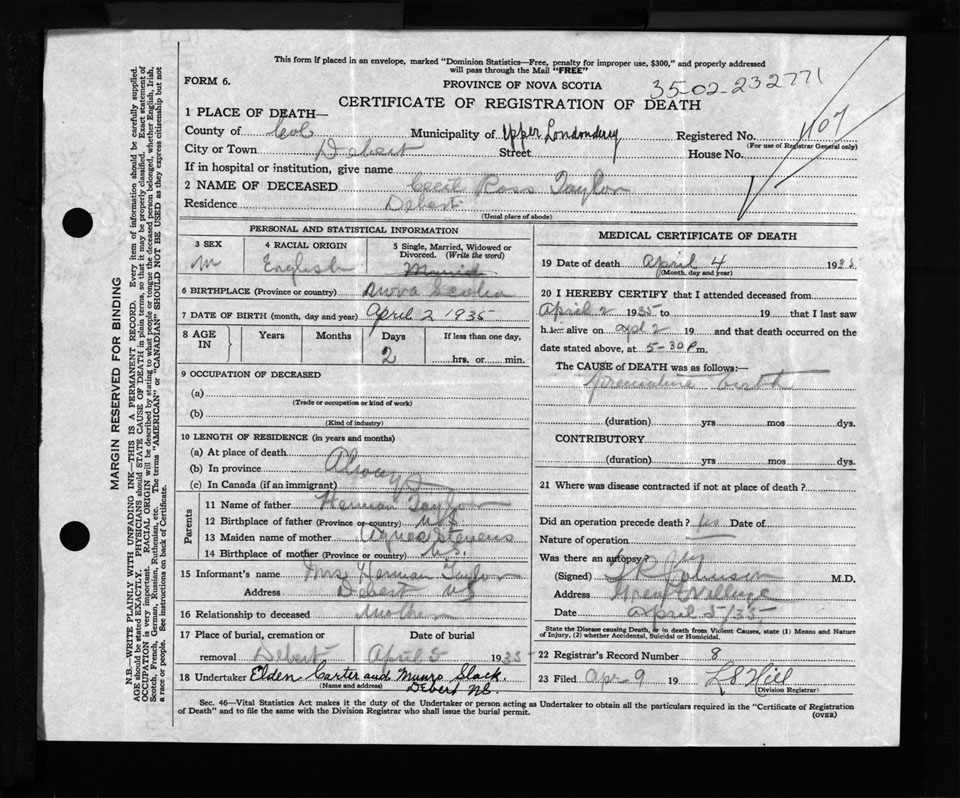 This form if placed in an envelope, marked "Dominion Statistics—Free, penalty for improper use, $300," and properly addressed
will pass through the Mail "FREE"
FORM 6.
PROVINCE OF NOVA SCOTIA
35-02-232771
CERTIFICATE OF REGISTRATION OF DEATH
1 PLACE OF DEATH—
County of Col Municipality of Upper Londonderry Registered No. 107
(For use of Registrar General only)
City or Town Debert Street House No.
If in hospital or institution, give name
2 NAME OF DECEASED Cecil Ross Taylor
Residence Debert
(Usual place of abode)
PERSONAL AND STATISTICAL INFORMATION
3 SEX 4 RACIAL ORIGIN 5 Single, Married, Widowed or
Divorced. (Write the word)
M English
6 BIRTHPLACE (Province or country) Nova Scotia
7 DATE OF BIRTH (month, day and year) April 2 1935
8 AGE IN Years Months Days If less than one day,
2 hrs. or min.
9 OCCUPATION OF DECEASED
(a)
(Trade or occupation or kind of work)
(b)
(Kind of industry)
10 LENGTH OF RESIDENCE (in years and months)
(a) At place of death
(b) In province Always
(c) In Canada (if an immigrant)
Parents
11 Name of father Herman Taylor
12 Birthplace of father (Province or country) N.S.
13 Maiden name of mother Agnes Stevens
14 Birthplace of mother (Province or country) N.S.
15 Informant's name Mrs Herman Taylor
Address Debert NS
16 Relationship to deceased Mother
17 Place of burial, cremation or Date of burial
removal Debert April 5 1935
18 Undertaker Elden Carter and Munro Slack.
(Name and address) Debert N.S.
MEDICAL CERTIFICATE OF DEATH
19 Date of death April 4 1935
(Month, day and year)
20 I HEREBY CERTIFY that I attended deceased from
April 2 1935 to 19 that I last saw
h alive on Apl 2 19 and that death occurred on
date stated above, at 5-30 P m.
The CAUSE OF DEATH was as follows:—
premature birth
(duration) yrs mos dys.
CONTRIBUTORY
(duration) yrs mos dys.
21 Where was disease contracted if not at place of death?
Did an operation precede death? Date of
Nature of operation
Was there an autopsy?
(Signed) Johnson M.D.
Address Great Village
Date April 5/35
State the Disease causing Death, or in death from Violent Causes, state (1) Means and Nature
of Injury, (2) whether Accidental, Suicidal or Homicidal.
22 Registrar's Record Number 8
23 Filed Apr 9 19 L S Hill
(Division Registrar)
Sec. 46—Vital Statistics Act makes it the duty of the Undertaker or person acting as Undertaker to obtain all the particulars required in the "Certificate of Registration
of Death" and to file the same with the Division Registrar who shall issue the burial permit. (OVER)
MARGIN RESERVED FOR BINDING
N.B.—WRITE PLAINLY WITH UNFADING INK—THIS IS A PERMANENT RECORD. Every item of information should be carefully supplied.
AGE should be stated EXACTLY. PHYSICIANS should STATE CAUSE OF DEATH in plain terms, so that it may be properly classified. Exact statement of
OCCUPATION is very important. RACIAL ORIGIN will be described by stating to what people or tongue the deceased person belonged, whether English, Irish,
Scotch, French, German, Russian, Ruthenian, etc. The terms "AMERICAN" or "CANADIAN" SHOULD NOT BE USED as they express citizenship but not
a race or people. See instructions on back of Certificate.